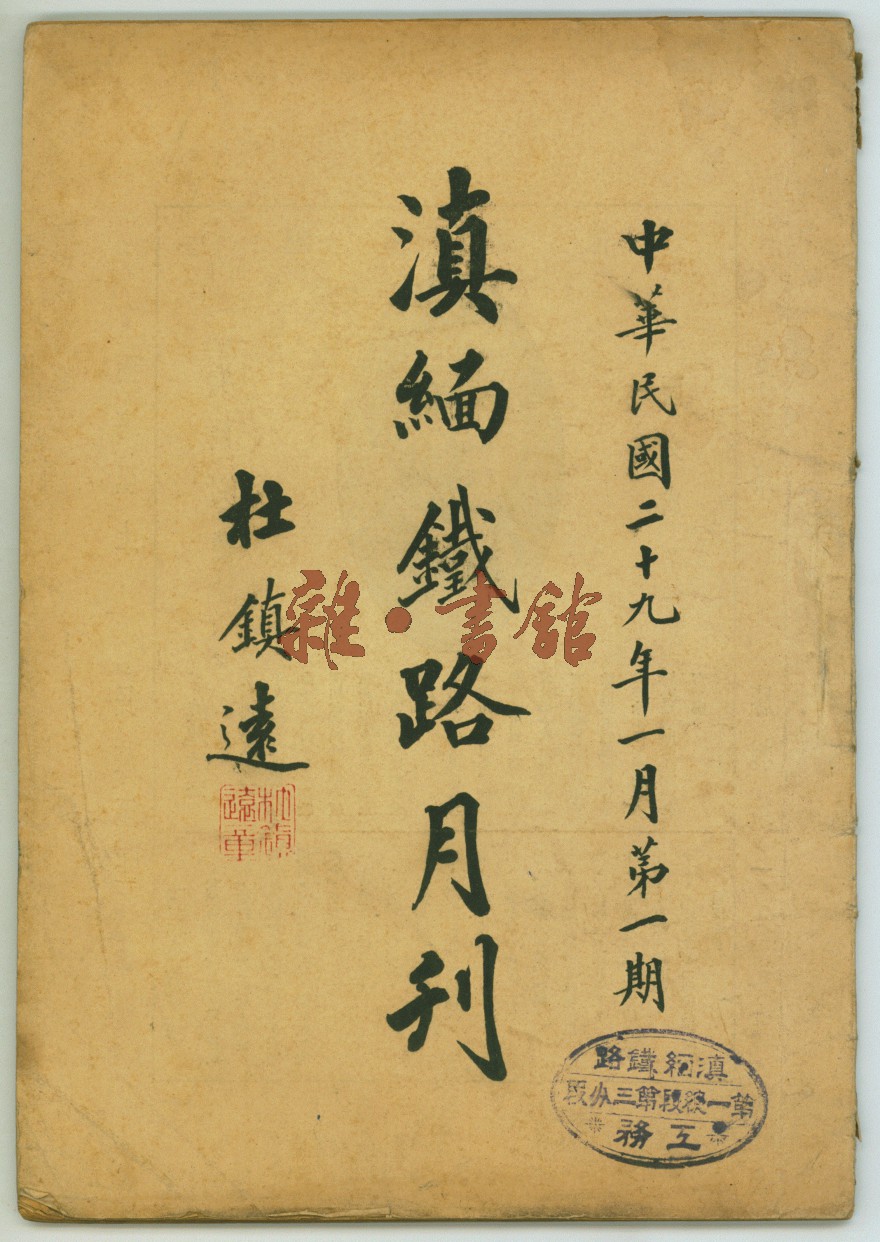 中華民國二十九年一月第一期
滇緬鐵路月刊
杜鎮遠
杜鎮遠章
雜·書館
滇緬鐵路
第一總段第三分段
工務